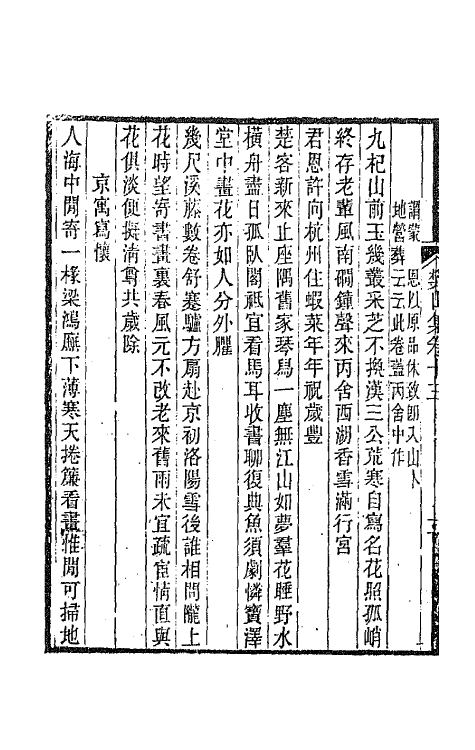 樊山集卷十三
謂蒙　恩以原品休致即又山人
地營葬云云此卷蓋丙舍中作
九杞山前玉幾叢采芝不換漢三公荒寒自寫名花照孤峭
終存老輩風南磵鐘聲來丙舍西湖香雪滿行宮
君恩許向杭州住蝦菜年年祝歲豐
楚客新來止座隅舊家琴舄一塵無江山如夢羣花睡野水
橫舟盡日孤臥閣祗宜看馬耳收書聊復典魚須劇憐寶澤
堂中畫花亦如人分外臞
幾尺溪藤數卷舒蹇驢方扇赴京初洛陽雪後誰相問隴上
花時望寄書畫裏春風元不改老來舊雨未宜疏宦情直與
花俱淡便擬清尊共歲除
京寓寫懷
人海中閒寄一椽梁鴻廡下薄寒天捲簾看畫惟閒可掃地